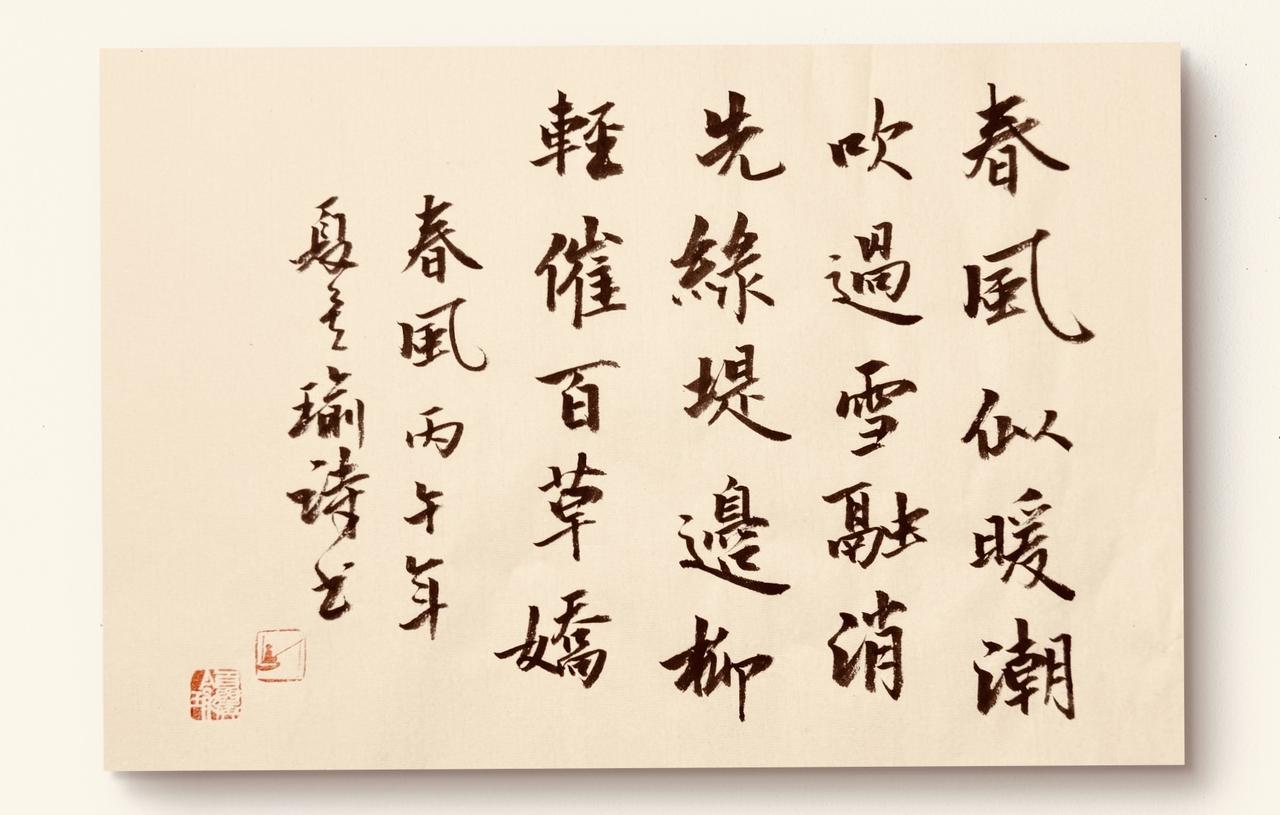 春風似暖潮
吹過雪融消
先綠堤邊柳
輕催百草嬌
春風丙午年
夏瑜詩书